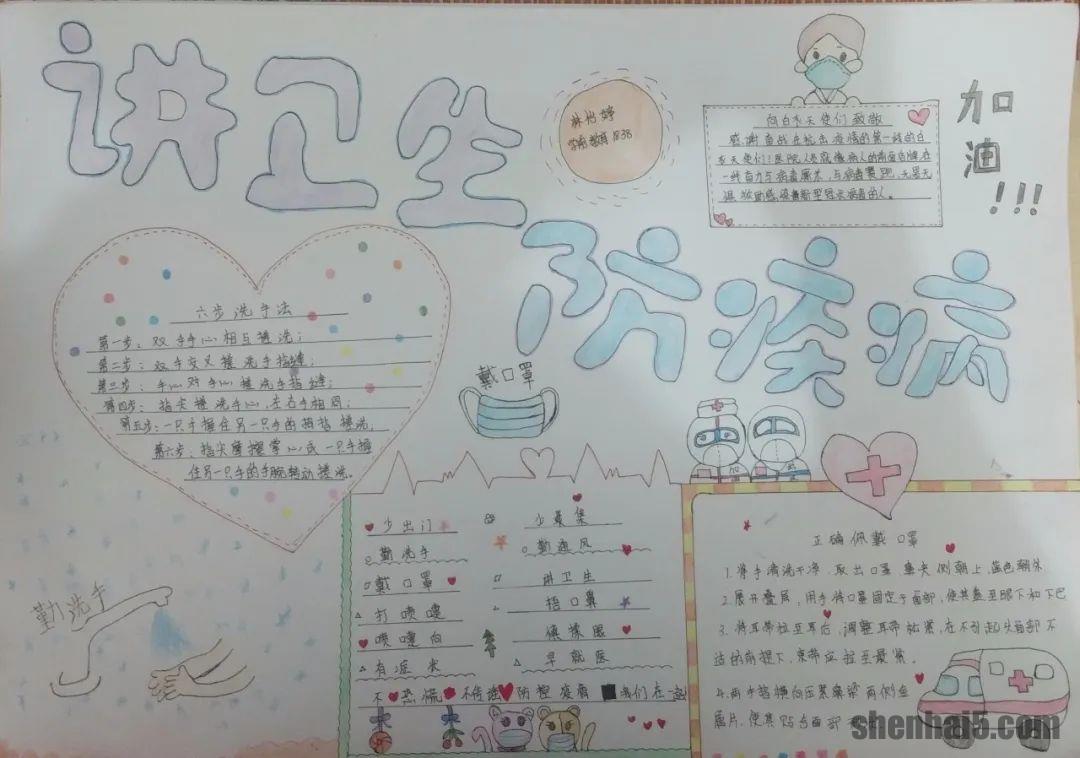 讲卫生
防疾病
林怡婷
加油!!!
向白衣天使们致敬
感谢奋战在抗击疫情的第一线的白
衣天使们!医院
一线奋力与病毒
六步洗手法
第一步:双手手心相互搓洗;
第二步:双手交叉搓洗手指缝;
第三步:手心对手心搓洗手指缝;
第四步:指尖搓洗手心,左右手相同;
第五步:一只手握住另一只手的拇指搓洗;
第六步:指尖摩擦掌心或一只手握
住另一只手的手腕转动搓洗。
戴口罩
勤洗手
少出门 少聚集
勤洗手 勤通风
戴口罩 讲卫生
打喷嚏 捂口鼻
喷嚏后 慎揉眼
有症状 早就医
不恐慌 不传谣 防控疫情 我们在一起
正确佩戴口罩
1.将手清洗干净,取出口罩 金夹侧朝上 蓝色朝外
2.展开叠层,用手将口罩固定于面部,使其盖至眼下和下巴
3.将耳带拉至耳后,调整耳带松紧,在不引起头面部不
适的前提下,束带应拉至最紧。
4.两手指横向压紧鼻梁两侧金
属片,使其贴合面部
shenhaj5.com